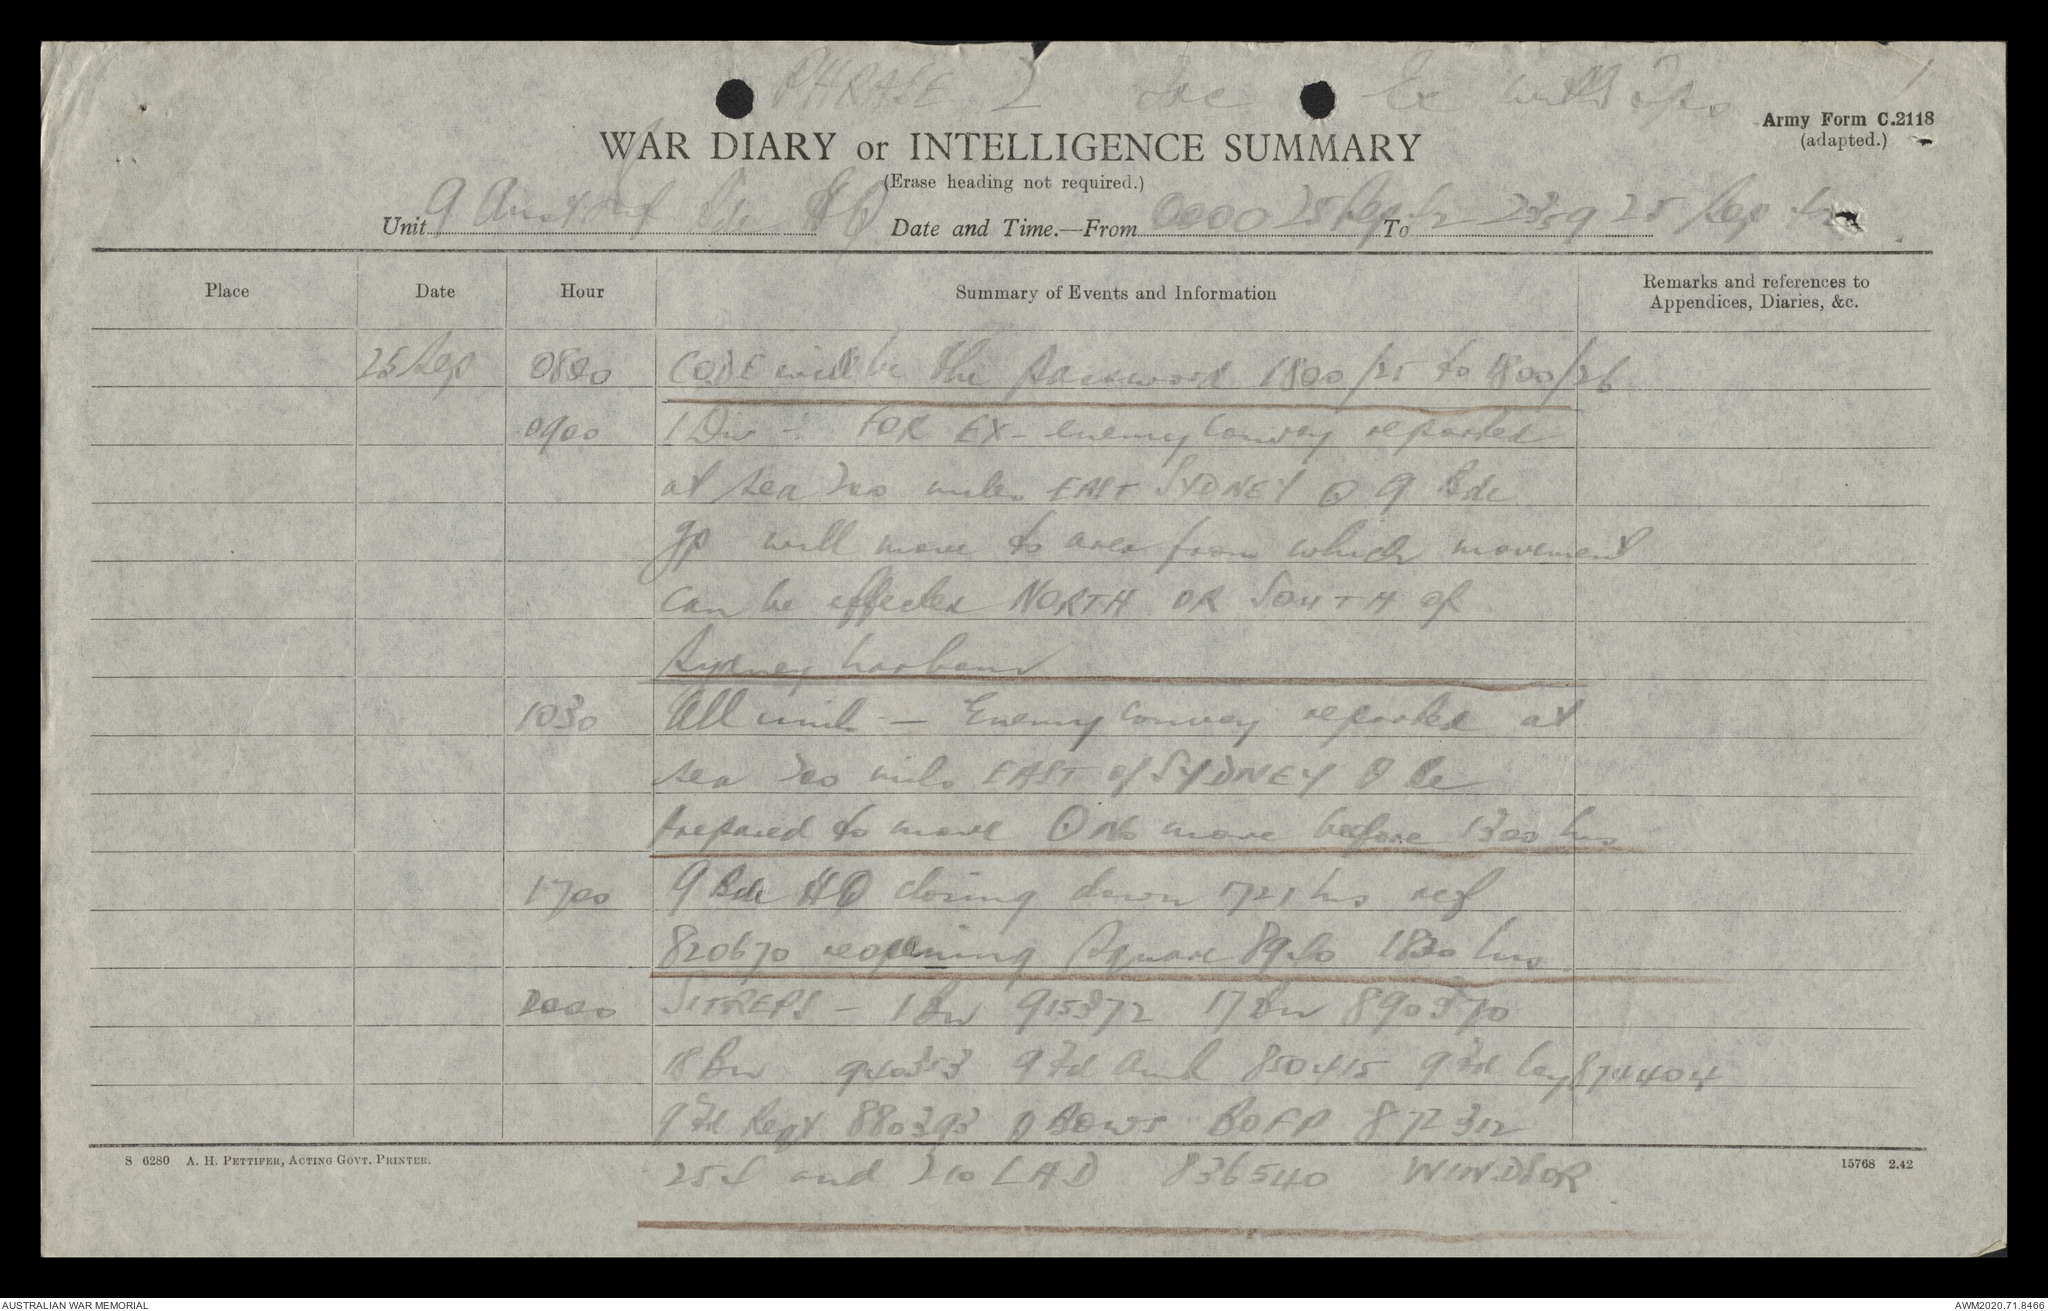 PHRASE 2 Ex with Tps 1
Army Form C.2118
(adapted.)
WAR DIARY or INTELLIGENCE SUMMARY
(Erase heading not required.)
Unit 9 Aust Inf Bde HQ Date and Time.—From 0000 25 Sep 42 To 2359 25 Sep 42
Place Date Hour Summary of Events and Information Remarks and references to Appendices, Diaries, &c.
25 Sep 0800 CODE will be the password 1800/25 to 1800/26
0900 1 Div :- FOR EX - enemy convoy reported
at sea 200 miles EAST SYDNEY 9 Bde
gp will move to area from which movement
can be effected NORTH OR SOUTH of
Sydney harbour
1030 All units — Enemy convoy reported at
sea 200 miles EAST of SYDNEY Be
prepared to move No move before 1300 hrs
1700 9 Bde HQ closing down 1721 hrs ref
820670 reopening Square 8940 1830 hrs
2000 SITREPS - 1 Bn 915372 17 Bn 890370
18 Bn 940353 9 Fd Amb 850415 9 Fd Coy 874404
9 Fd Regt 880393 BOWS BOFP 872312
25 and 210 LAD 836540 WINDSOR
S 6280 A. H. PETTIFER, ACTING GOVT. PRINTER.
15768 2.42
AUSTRALIAN WAR MEMORIAL
AWM2020.71.8466